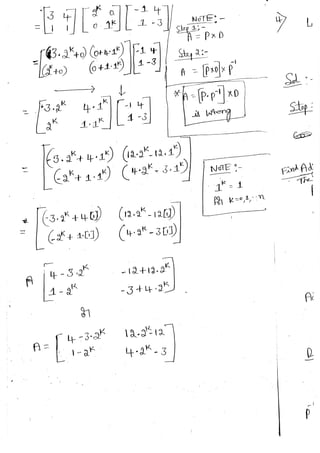 = [3 4 / 1 1] [2^K 0 / 0 1^K] [-1 4 / 1 -3]
NOTE :-
Step 1:-
A = P × D
Step 2:-
A = [P×D] × P^-1
* A = [P·P^-1] × D
is wrong
[(3·2^K+0) (0+4·1^K) / (2^K+0) (0+1·1^K)] [-1 4 / 1 -3]
= [3·2^K 4·1^K / 2^K 1·1^K] [-1 4 / 1 -3]
= [(-3·2^K + 4·1^K) (12·2^K - 12·1^K) / (-2^K + 1·1^K) (4·2^K - 3·1^K)]
NOTE :-
1^K = 1
K=0,1,...n
= [(-3·2^K + 4[1]) (12·2^K - 12[1]) / (-2^K + 1·[1]) (4·2^K - 3[1])]
A [4-3·2^K -12+12·2^K / 1-2^K -3+4·2^K]
A = [4-3·2^K 12·2^K-12 / 1-2^K 4·2^K-3]
4)
L
Sol :-
Step :
Find Ad
The
D
P